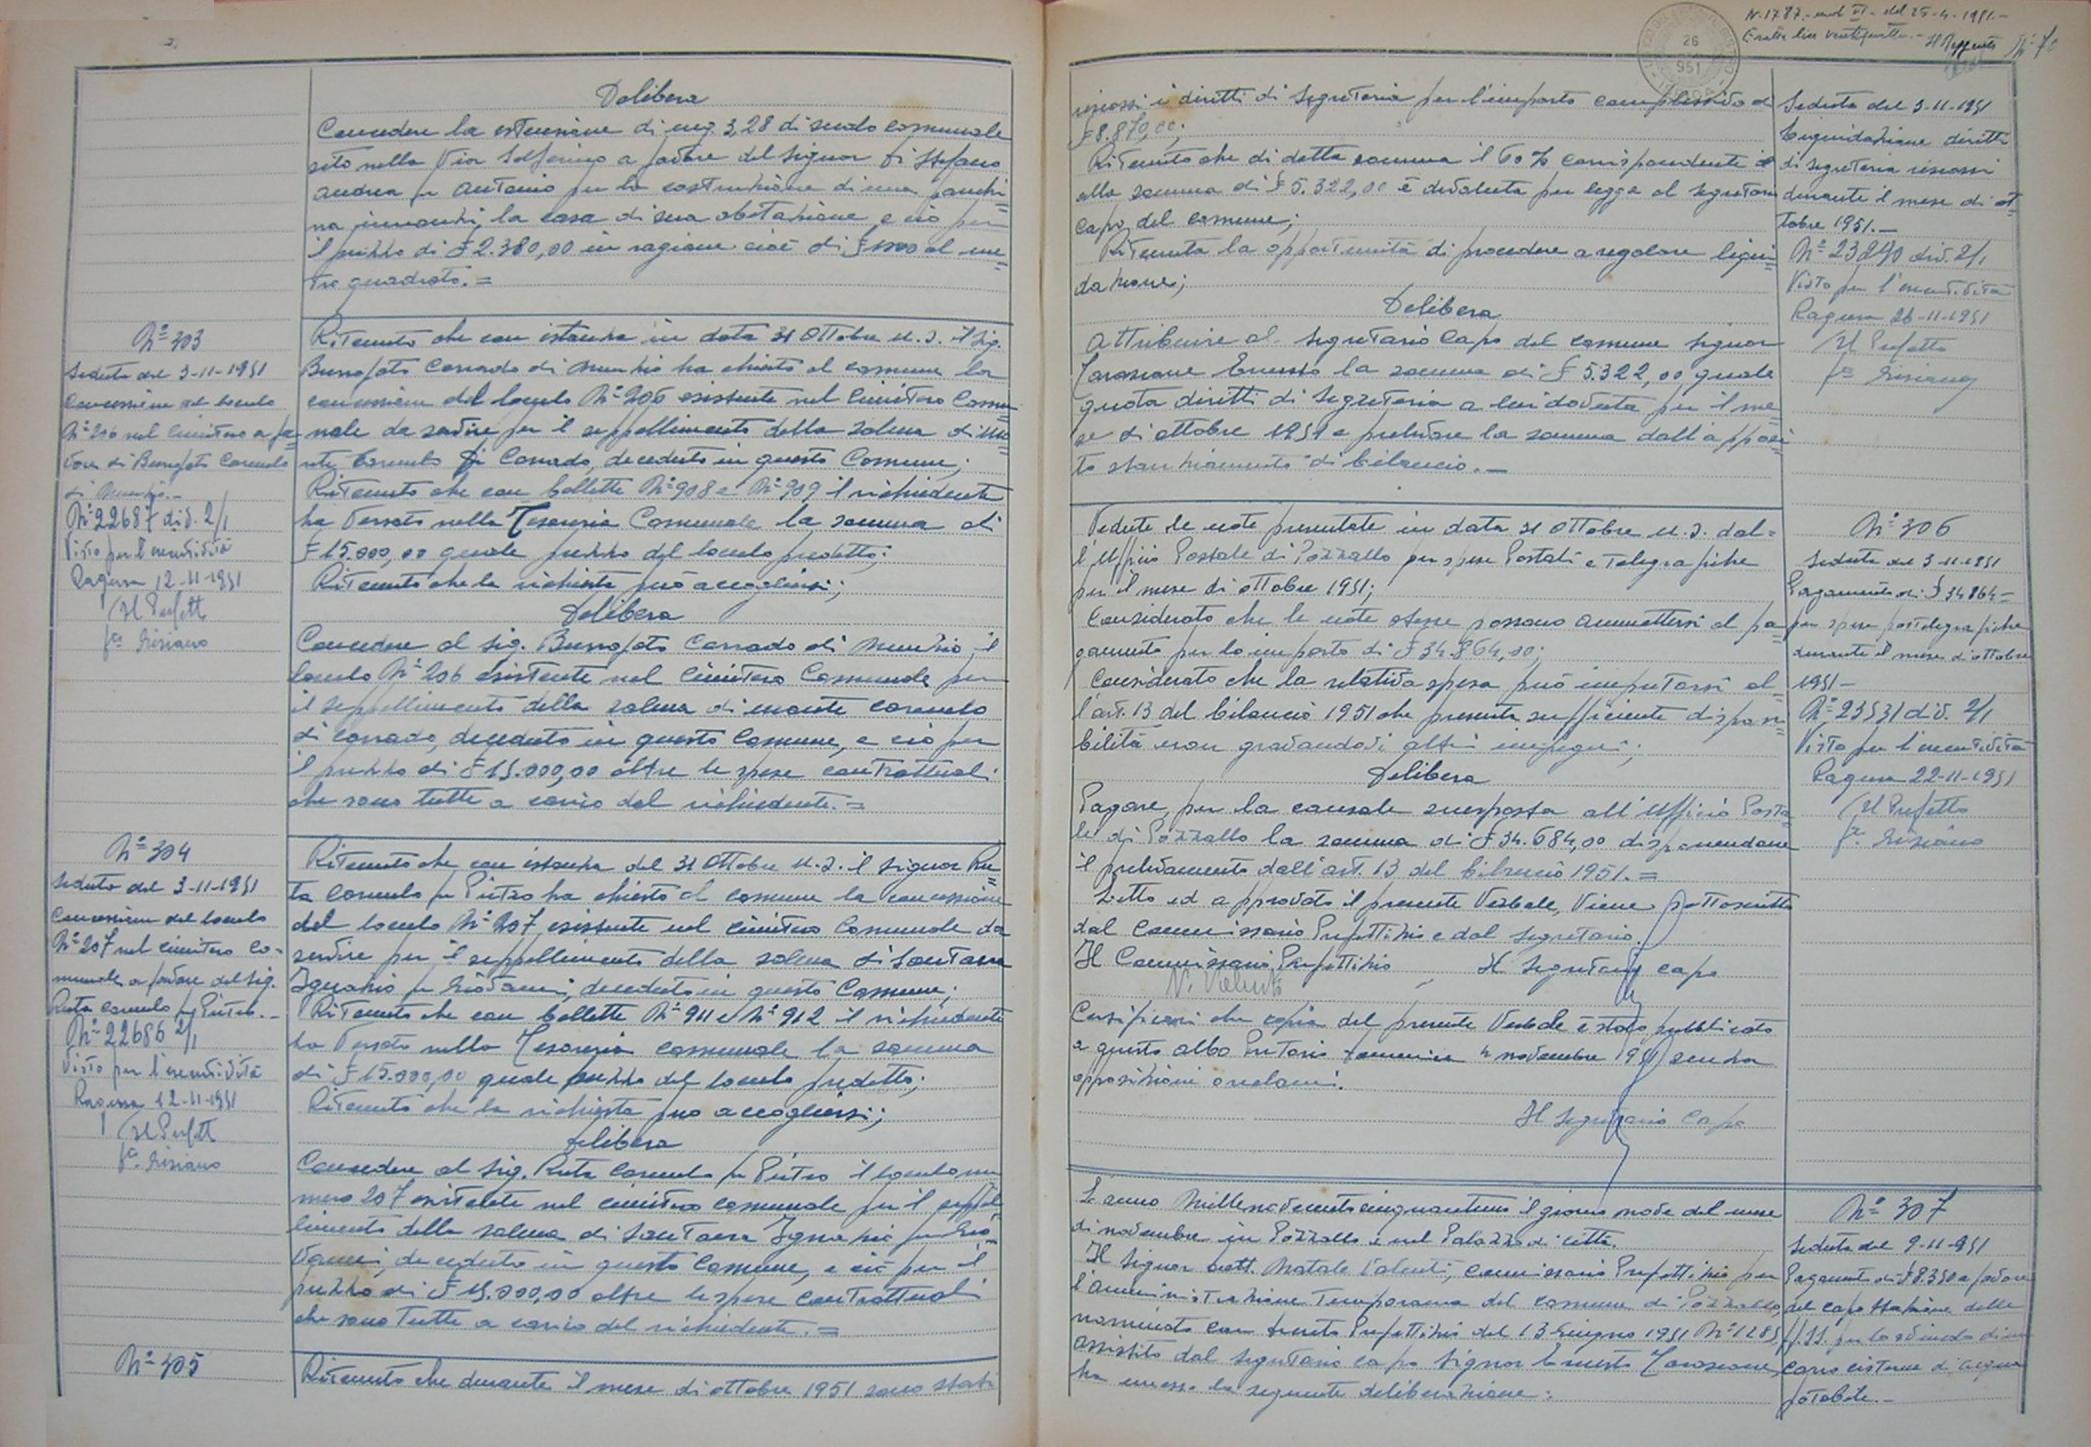 Delibera
Concedere la estensione di mq. 3,28 di suolo comunale
sito nella Via Solferino a favore del signor Di Stefano
Andrea fu Antonio per la costruzione di una panchi=
na innanzi la casa di sua abitazione, e ciò per
il prezzo di £ 2.380,00 in ragione cioè di £ 1000 al me=
tro quadrato.=
N° 303
Seduta del 3-11-1951
Concessione del loculo
N° 206 nel cimitero a fa=
vore di Bonofato Corrado
di Nunzio.-
N° 22687 div. 2/1
Visto per l'esecutività
Ragusa 12-11-1951
Il Prefetto
f.to Grisiano
Ritenuto che con istanza in data 31 Ottobre u.s. il Sig.
Corrado di Nunzio ha chiesto al comune la
concessione del loculo N° 206 esistente nel Cimitero Comu=
nale da servire per il seppellimento della salma di
Carmelo di Corrado, deceduto in questo Comune;
Ritenuto che con bollette N° 908 e N° 909 il richiedente
ha versato nella Tesoreria Comunale la somma di
£ 15.000,00 quale prezzo del loculo predetto;
Ritenuto che la richiesta può accogliersi;
Delibera
Concedere al Sig. Corrado di Nunzio, il
loculo N° 206 esistente nel Cimitero Comunale per
il seppellimento della salma di Carmelo
di Corrado, deceduto in questo Comune, e ciò per
il prezzo di £ 15.000,00 oltre le spese contrattuali
che sono tutte a carico del richiedente.=
N° 304
Seduta del 3-11-1951
Concessione del loculo
N° 207 nel cimitero co-
munale a favore del Sig.
Ruta Carmelo fu Pietro.-
N° 22686 2/1
Visto per l'esecutività
Ragusa 12-11-1951
Il Prefetto
f.to Grisiano
Ritenuto che con istanza del 31 Ottobre u.s. il signor Ru=
ta Carmelo fu Pietro ha chiesto al comune la concessione
del loculo N° 207 esistente nel cimitero Comunale da
servire per il seppellimento della salma di Santaera
Ignazio fu Giovanni, deceduto in questo Comune;
Ritenuto che con bollette N° 911 e N° 912 il richiedente
ha versato nella Tesoreria comunale la somma
di £ 15.000,00 quale prezzo del loculo predetto;
Ritenuto che la richiesta può accogliersi;
Delibera
Concedere al Sig. Ruta Carmelo fu Pietro il loculo nu
mero 207 esistente nel cimitero comunale per il seppel=
limento della salma di Santaera Ignazio fu Gio=
vanni, deceduto in questo Comune, e ciò per il
prezzo di £ 15.000,00 oltre le spese contrattuali
che sono tutte a carico del richiedente.=
N° 305
Ritenuto che durante il mese di ottobre 1951 sono stati
N. 1787 del 25-4-1951.-
26
951
riscossi i diritti di Segreteria per l'importo complessivo di
£ 8.870,00;
Ritenuto che di detta somma il 60% corrispondente
alla somma di £ 5.322,00 è devoluta per legge al segretario
capo del comune;
Ritenuta la opportunità di procedere a regolare liqui=
dazione;
Delibera
Attribuire al Segretario Capo del comune signor
Ernesto la somma di £ 5.322,00 quale
quota diritti di Segreteria a lui dovuta per il me=
se di ottobre 1951 e prelevare la somma dall'apposi
to stanziamento di bilancio.-
Seduta del 3-11-1951
Liquidazione diritti
di segreteria riscossi
durante il mese di ot=
tobre 1951.-
N° 23240 div. 2/1
Visto per l'esecutività
Ragusa 26-11-1951
Il Prefetto
f.to Grisiano
Vedute le note presentate in data 31 Ottobre u.s. dal=
l'Ufficio Postale di Pozzallo per spese Postali e Telegrafiche
per il mese di ottobre 1951;
Considerato che le note stesse possono ammettersi al pa=
gamento per lo importo di £ 34.864,00;
Considerato che la relativa spesa può imputarsi al=
l'art. 13 del bilancio 1951 che presenta sufficiente dispon=
bilità non gravandovi altri impegni;
Delibera
Pagare, per la causale suesposta all'Ufficio Posta=
le di Pozzallo la somma di £ 34.684,00 disponendone
il prelevamento dall'art. 13 del bilancio 1951.=
Letto ed approvato il presente Verbale, viene sottoscritto
dal Commissario Prefettizio e dal Segretario.
Il Commissario Prefettizio Il Segretario capo
N. Valenti
Certificasi che copia del presente Verbale è stata pubblicata
a questo albo Pretorio domenica 4 novembre 1951 senza
opposizioni o reclami.
Il Segretario Capo
N° 306
Seduta del 3-11-1951
Pagamento di £ 34864=
per spese postelegrafiche
durante il mese di ottobre
1951-
N° 23531 div. 2/1
Visto per l'esecutività
Ragusa 22-11-1951
Il Prefetto
f.to Grisiano
L'anno Millenovecentocinquantuno il giorno nove del mese
di novembre in Pozzallo e nel Palazzo di città.
Il Signor Dott. Natale Valenti, Commissario Prefettizio per
l'Amministrazione Temporanea del comune di Pozzallo,
nominato con decreto Prefettizio del 13 Giugno 1951 N° 1285
assistito dal Segretario capo Signor Ernesto
ha emesso la seguente deliberazione:
N° 307
Seduta del 9-11-951
Pagamento di £ 8.350 a favore
del capo stazione delle
FF.SS. per lo
carro cisterna di acqua
potabile.-